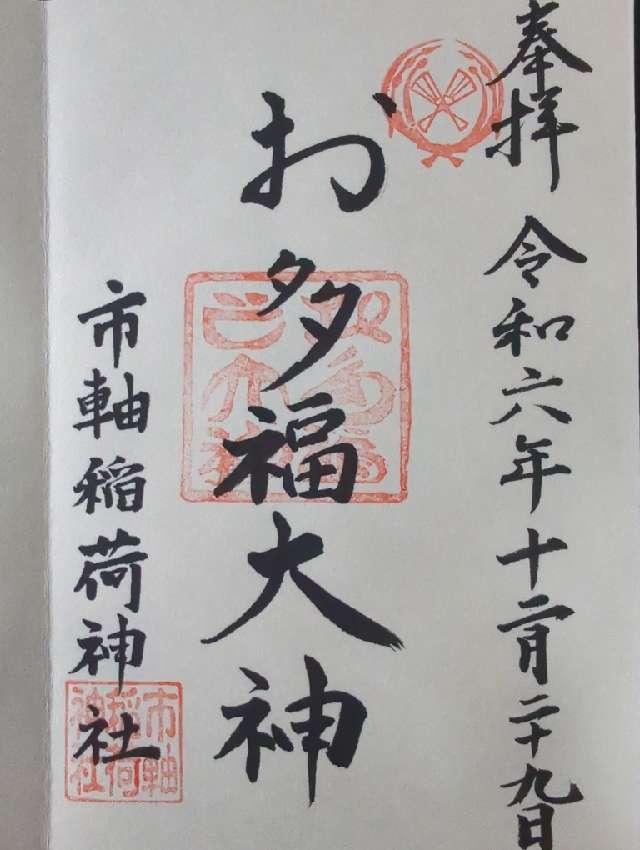 奉拝
令和六年十二月二十九日
お多福大神
市軸稲荷神社
市軸
稲荷
神社